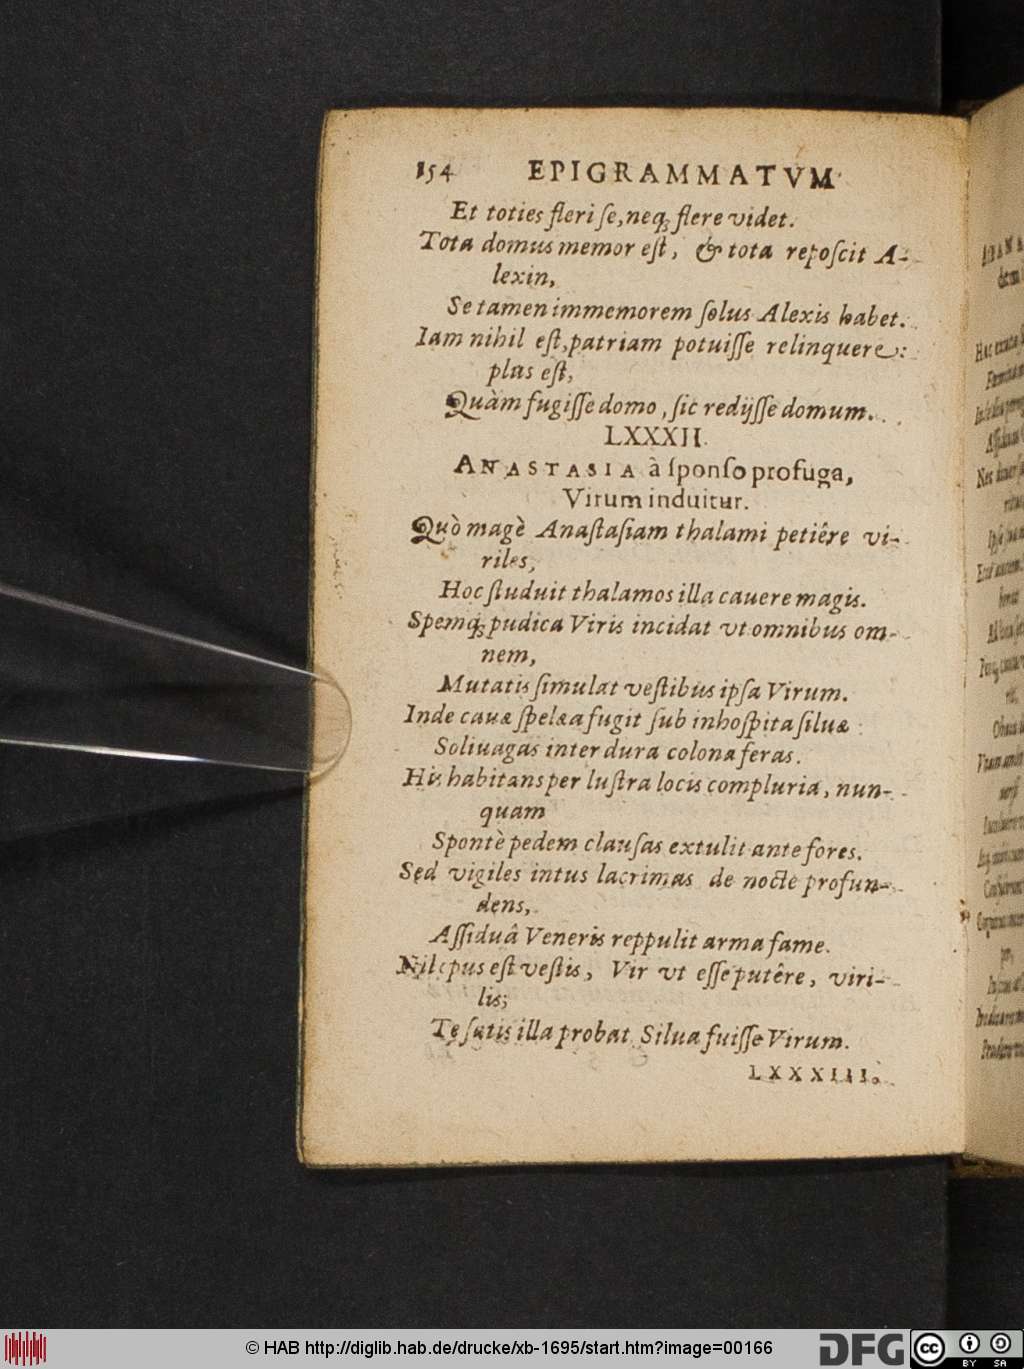 154 EPIGRAMMATVM
Et toties fleri ſe, neq; flere videt.
Tota domus memor eſt, & tota repoſcit A-
lexin,
Se tamen immemorem ſolus Alexis habet.
Iam nihil eſt, patriam potuiſſe relinquere:
plus eſt,
Quàm fugiſſe domo, ſic redijſſe domum.
LXXXII.
ANASTASIA à ſponſo profuga,
Virum induitur.
Quò magè Anaſtaſiam thalami petiêre vi-
riles,
Hoc ſtuduit thalamos illa cauere magis.
Spemq; pudica Viris incidat vt omnibus om-
nem,
Mutatis ſimulat veſtibus ipſa Virum.
Inde cauæ ſpelæa fugit ſub inhoſpita ſiluæ:
Soliuagas inter dura colona feras.
His habitans per luſtra locis compluria, nun-
quam
Spontè pedem clauſas extulit ante fores.
Sed vigiles intus lacrimas de nocte profun-
dens,
Aſſiduâ Veneris reppulit arma fame.
Nil opus eſt veſtis, Vir vt eſſe putêre, viri-
lis;
Te ſatis illa probat Silua fuiſſe Virum.
LXXXIII.
© HAB http://diglib.hab.de/drucke/xb-1695/start.htm?image=00166
DFG
cc
BY SA